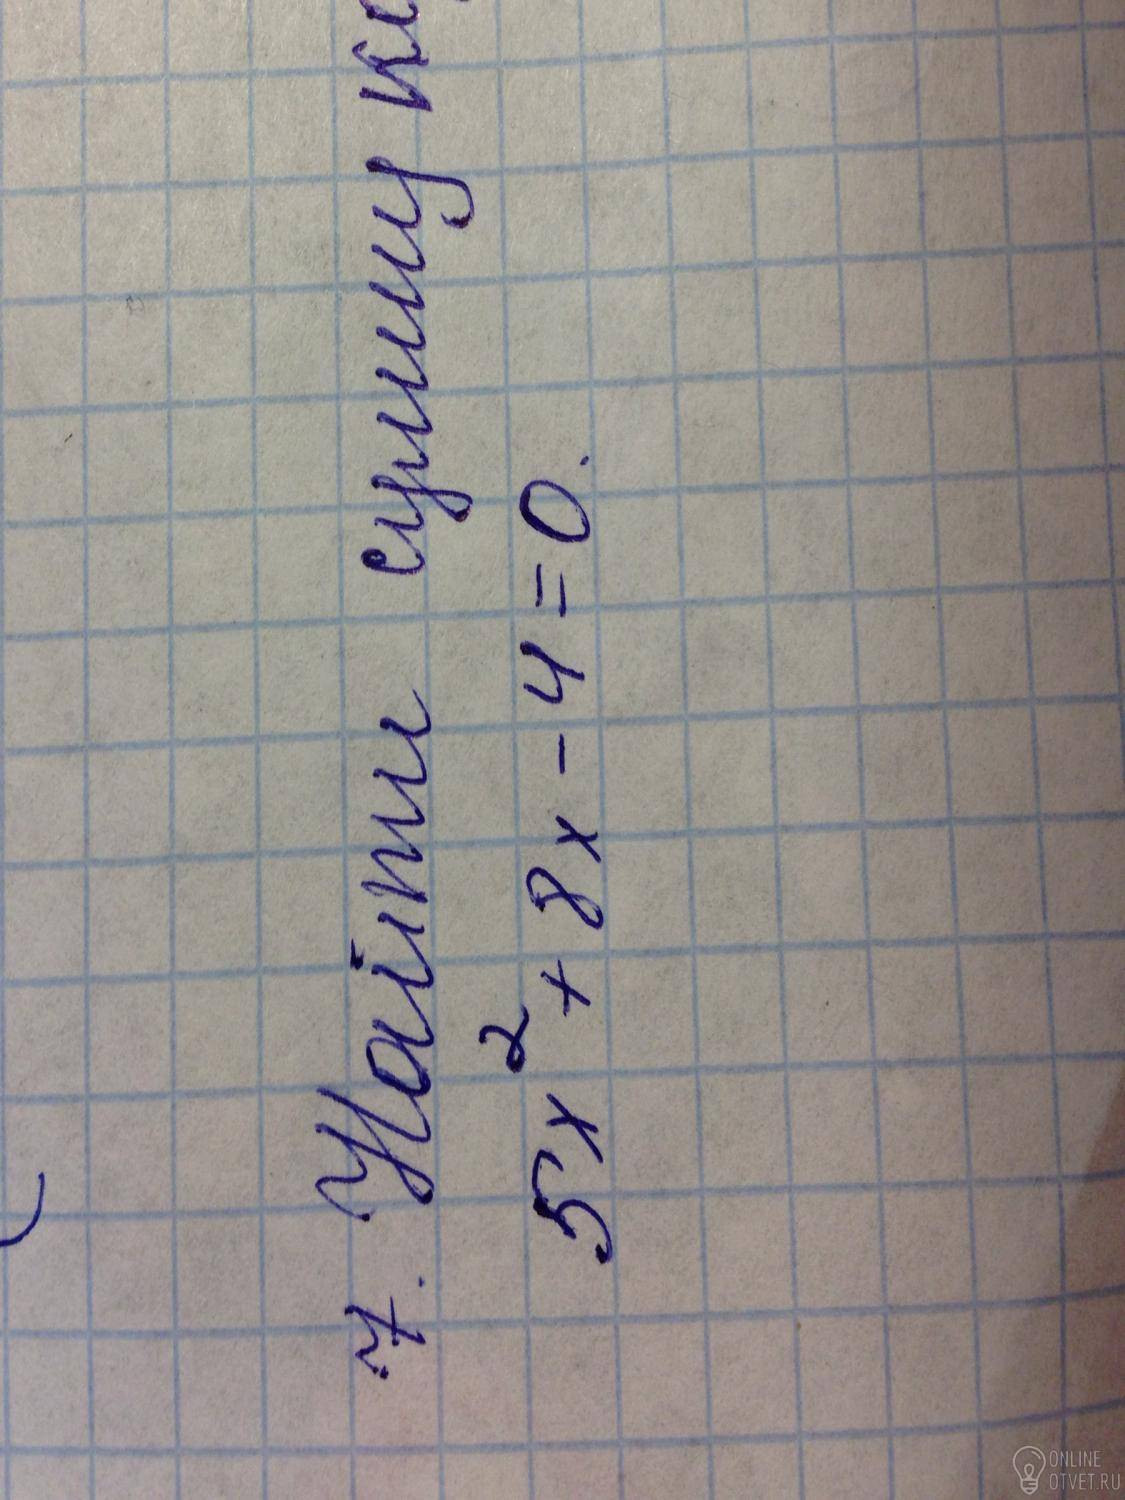 7. Найти сумму
5x² + 8x - 4 = 0.
ONLINE
OTVET.RU